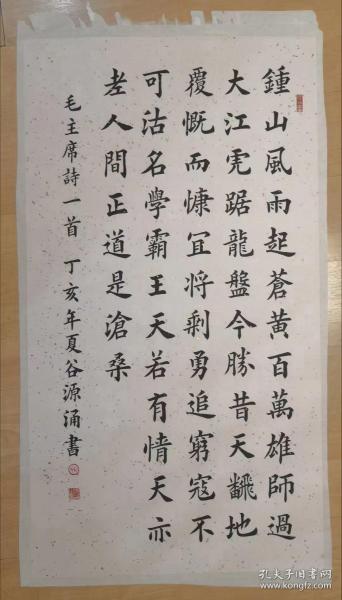 鍾山風雨起蒼黃百萬雄師過
大江虎踞龍盤今勝昔天翻地
覆慨而慷宜将剩勇追窮寇不
可沽名學霸王天若有情天亦
老人間正道是滄桑
毛主席詩一首 丁亥年夏谷源涌書
孔夫子旧书网